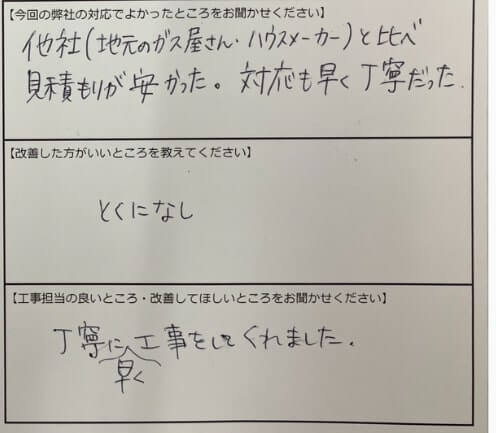 【今回の弊社の対応でよかったところをお聞かせください】
他社(地元のガス屋さん・ハウスメーカー)と比べ
見積もりが安かった。対応も早く丁寧だった.
【改善した方がいいところを教えてください】
とくになし
【工事担当の良いところ・改善してほしいところをお聞かせください】
丁寧に工事をしてくれました.
早く